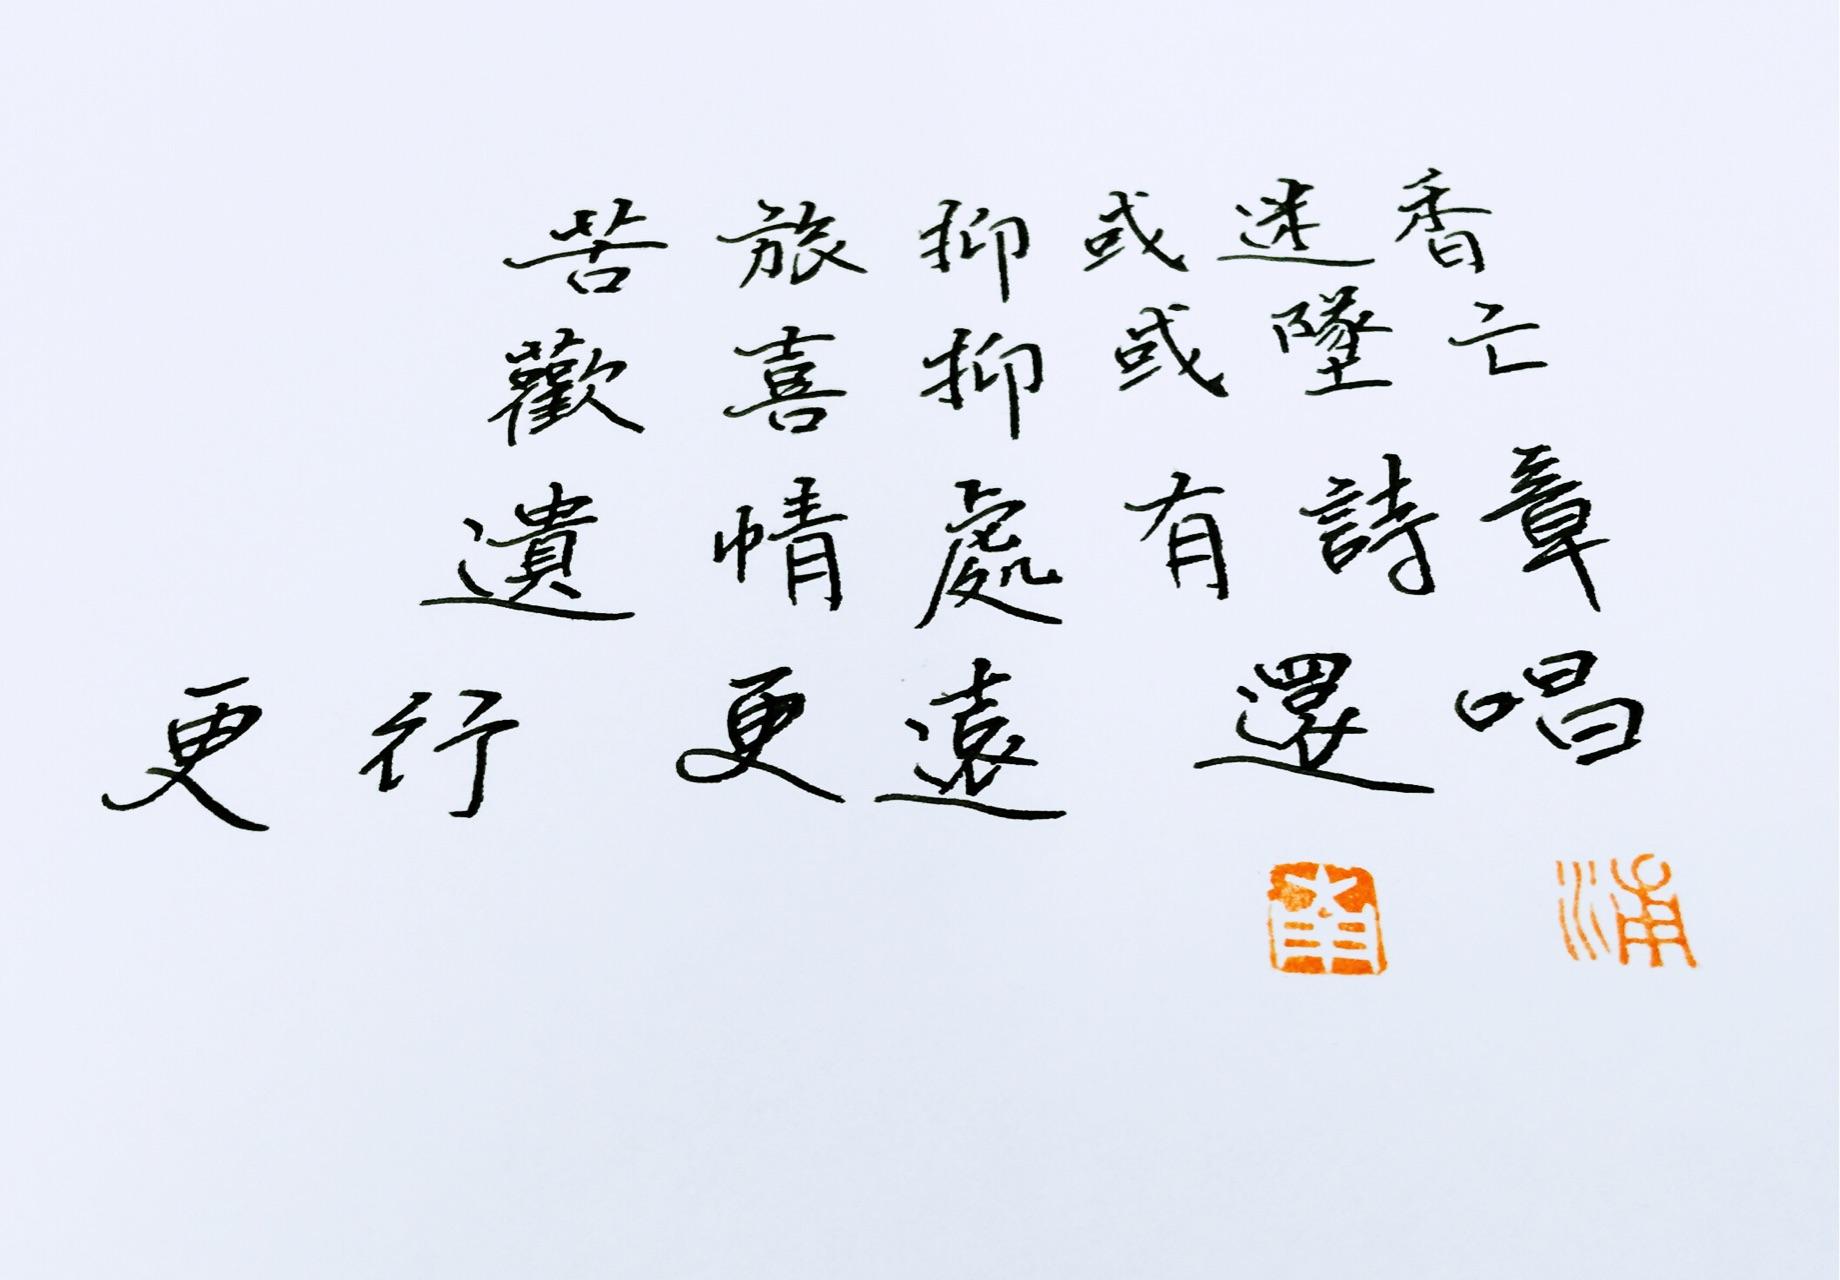 苦旅抑或迷香
歡喜抑或墜亡
遺情處有詩章
更行更遠還唱